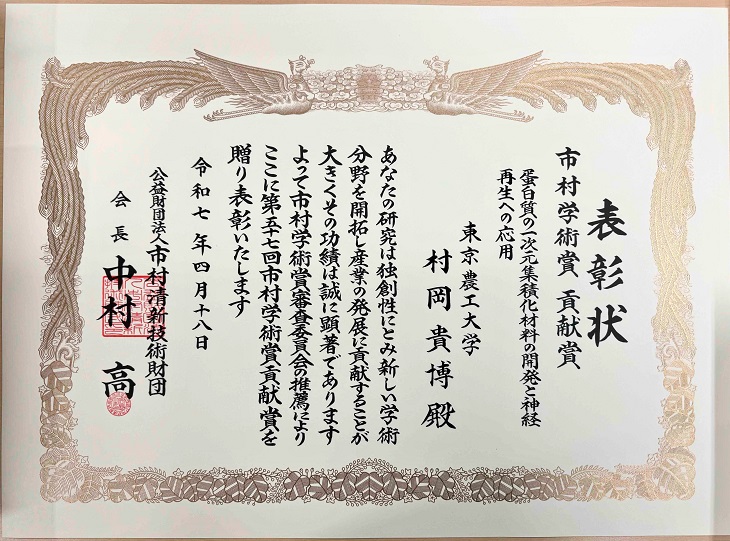 表彰状
市村学術賞 貢献賞
蛋白質の一次元集積化材料の開発と神経
再生への応用
東京農工大学
村岡貴博殿
あなたの研究は独創性にとみ新しい学術
分野を開拓し産業の発展に貢献することが
大きくその功績は誠に顕著であります
よって市村学術賞審査委員会の推薦により
ここに第五十七回市村学術賞貢献賞を
贈り表彰いたします
令和七年四月十八日
公益財団法人市村清新技術財団
会長 中村 高